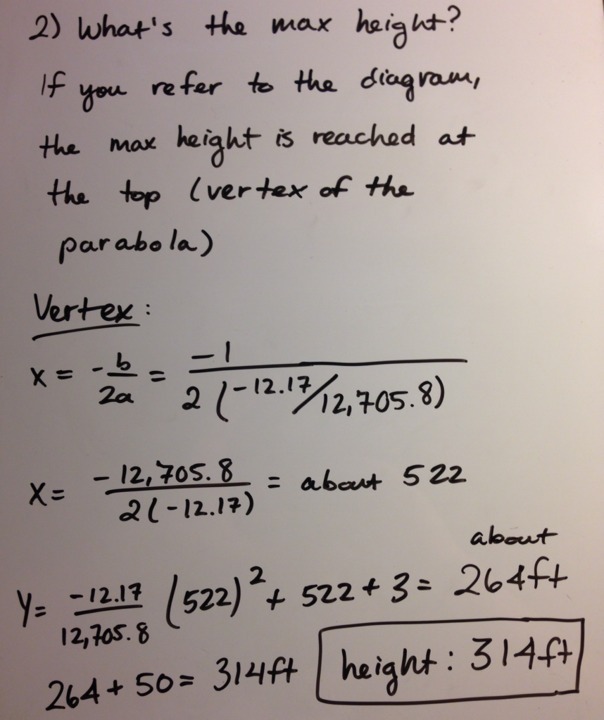 2) What's the max height?
If you refer to the diagram,
the max height is reached at
the top (vertex of the
parabola)
Vertex:
x = -b/2a = -1/2(-12.17/12,705.8)
x = -12,705.8/2(-12.17) = about 522
about
Y = -12.17/12,705.8 (522)² + 522 + 3 = 264ft
264 + 50 = 314ft height: 314ft